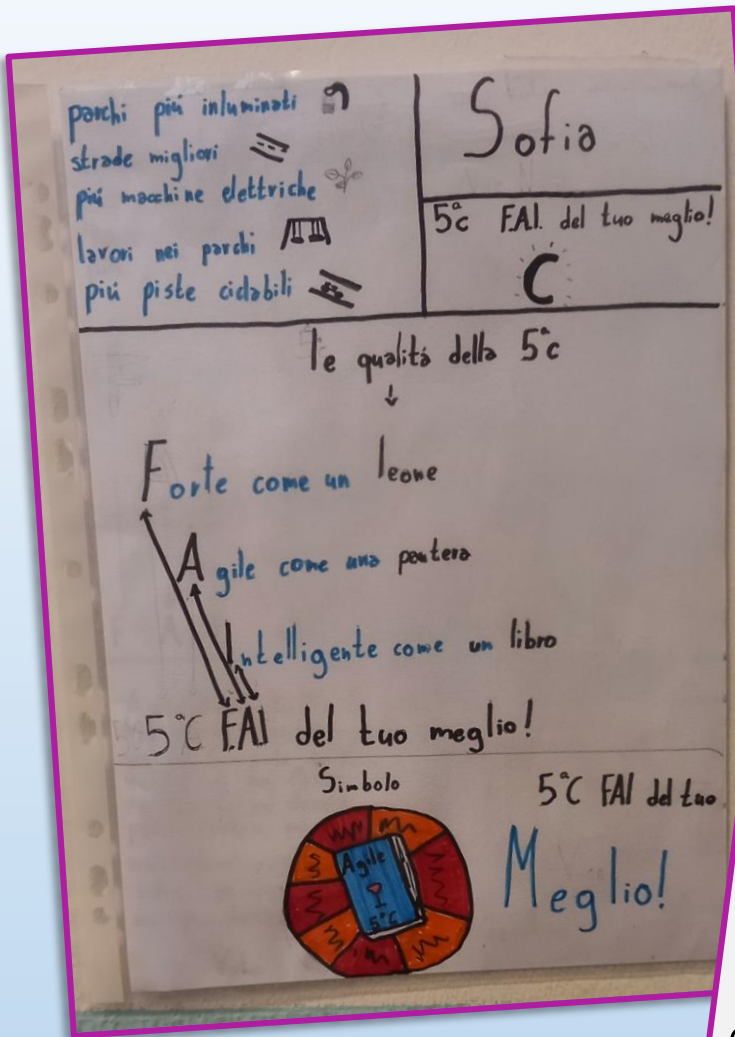 parchi piú inluminati
strade migliori
piú macchine elettriche
lavori nei parchi
piú piste ciclabili
Sofia
5ªc F.A.I. del tuo meglio!
C
le qualitá della 5ªc
Forte come un leone
Agile come una pantera
Intelligente come un libro
5ªC F.A.I del tuo meglio!
Simbolo
Agile
5ªC
5ªC FAI del tuo
Meglio!